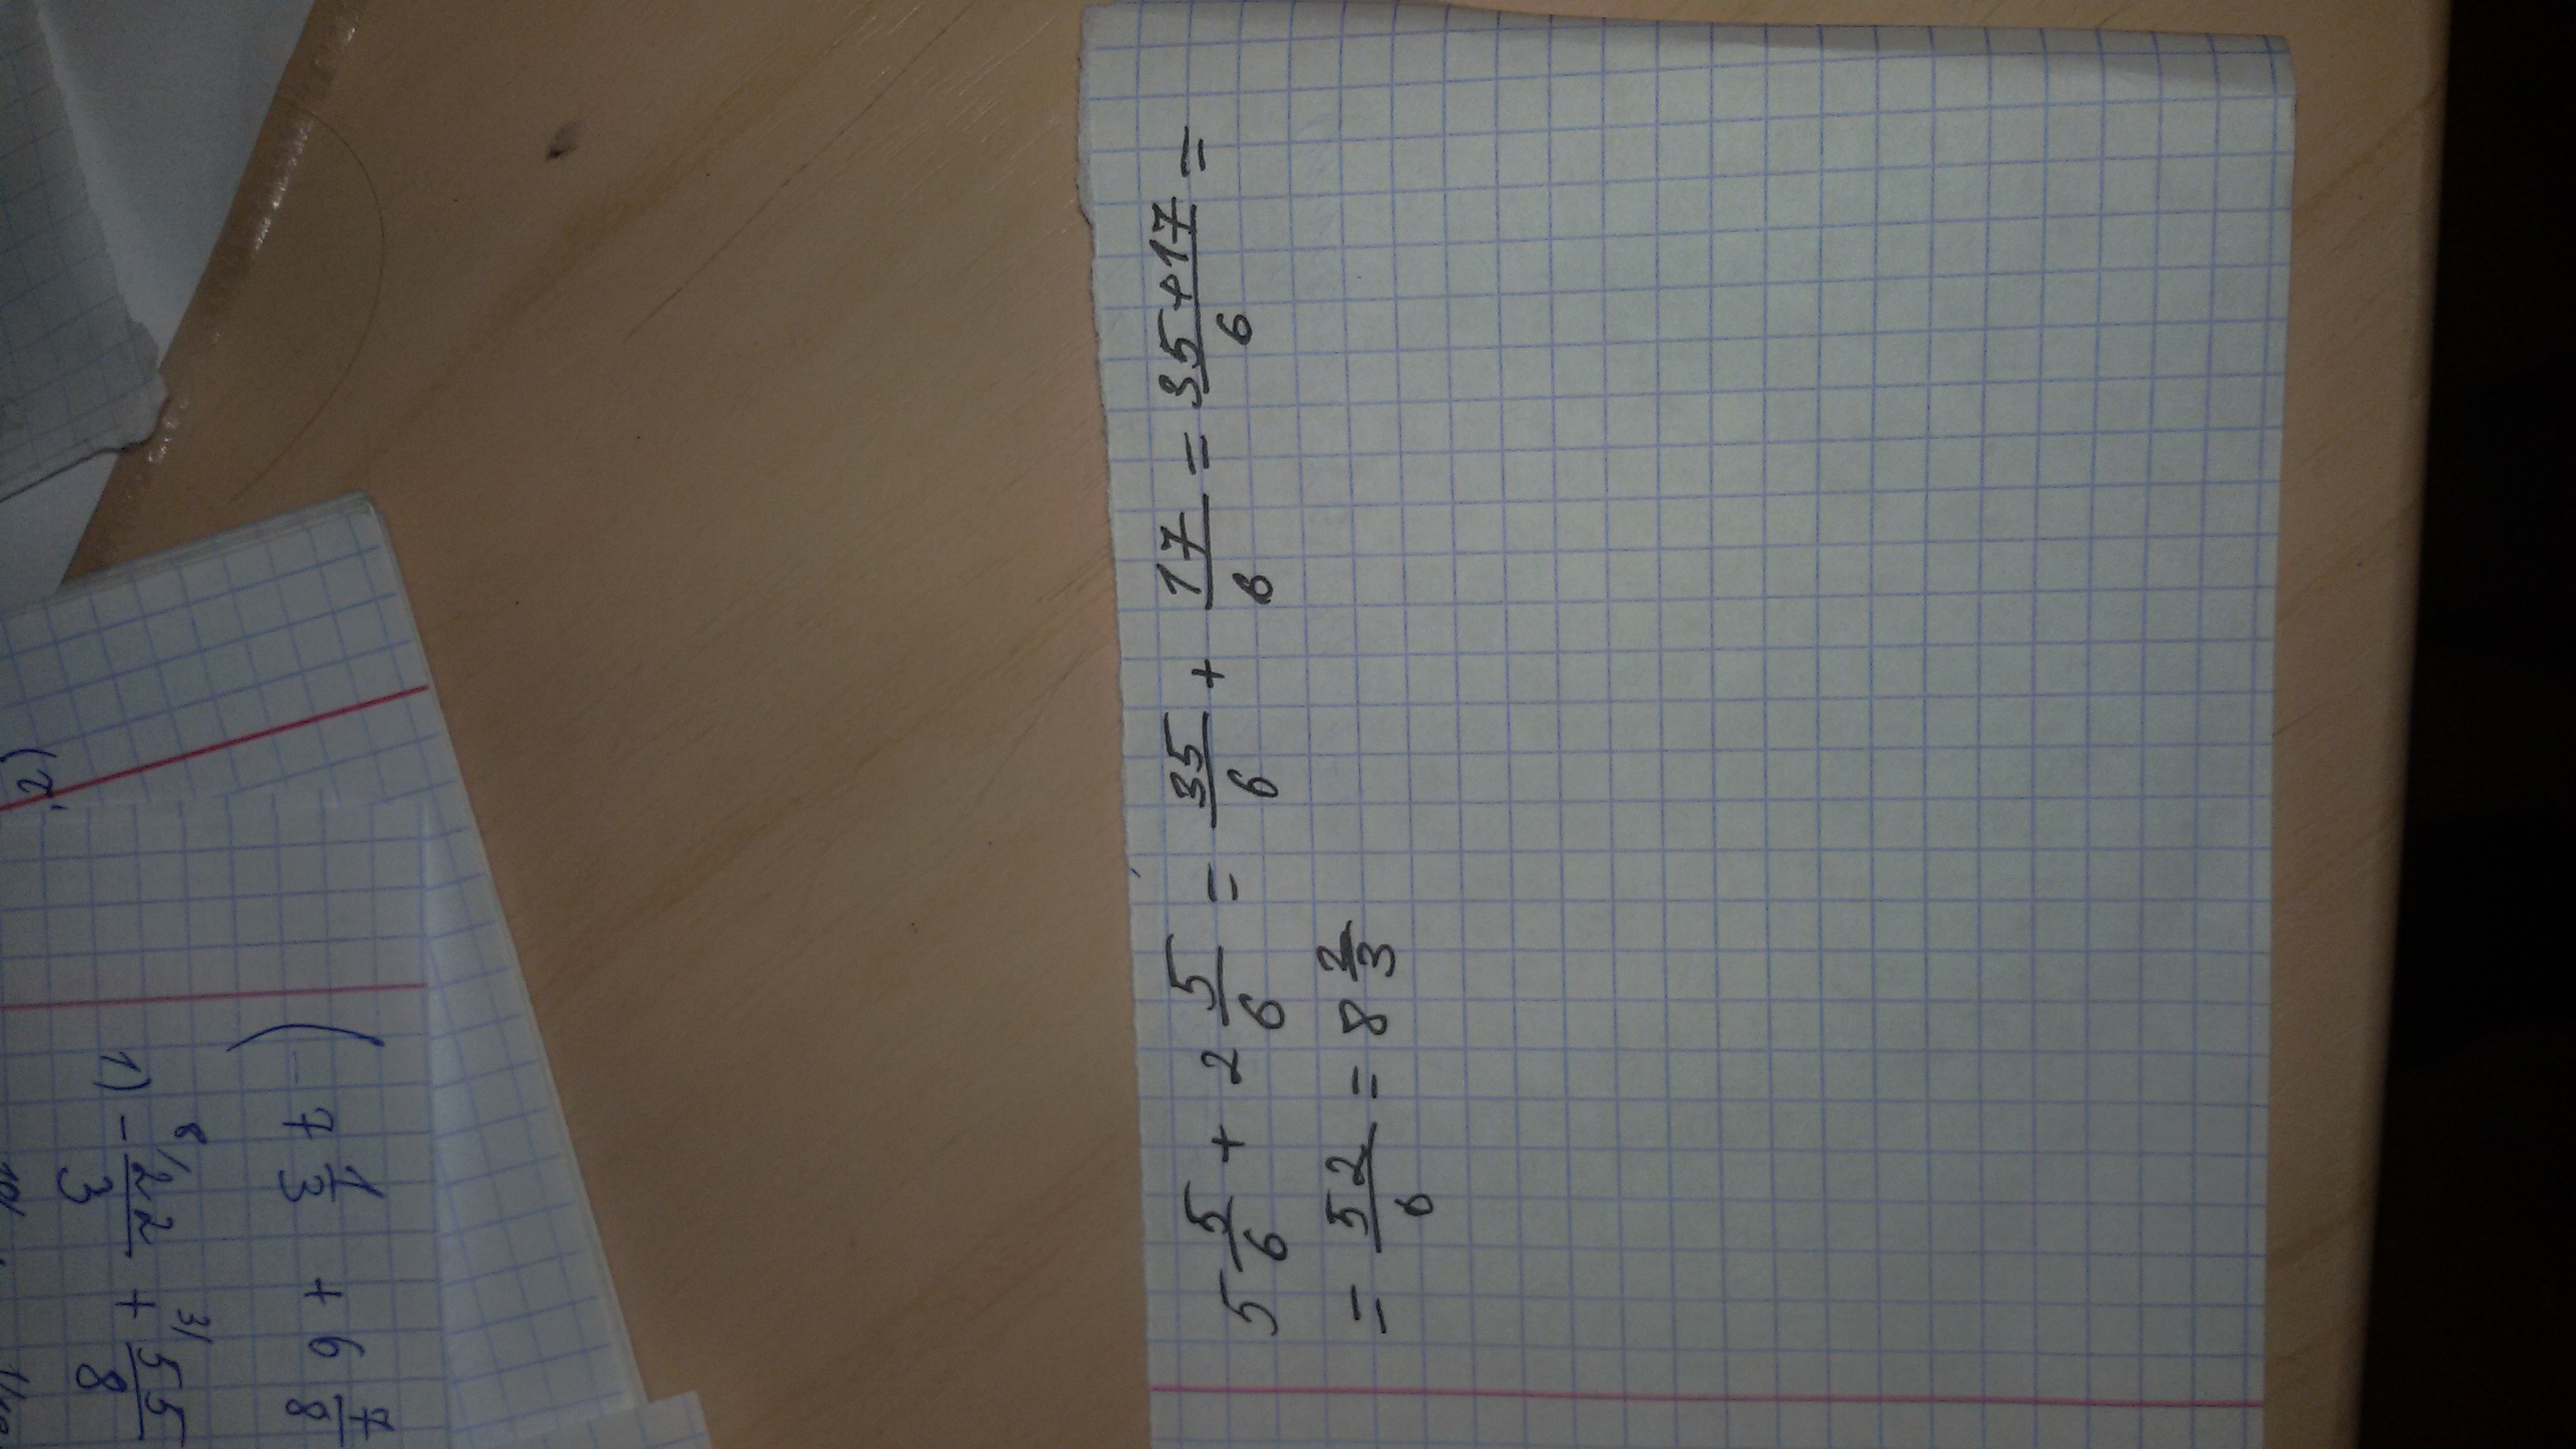 5 5/6 + 2 5/6 = 35/6 + 17/6 = 35+17/6 =
= 52/6 = 8 2/3
(- 7 1/3 + 6 7/8
1) - 8/ 22/3 + 3/ 55/8